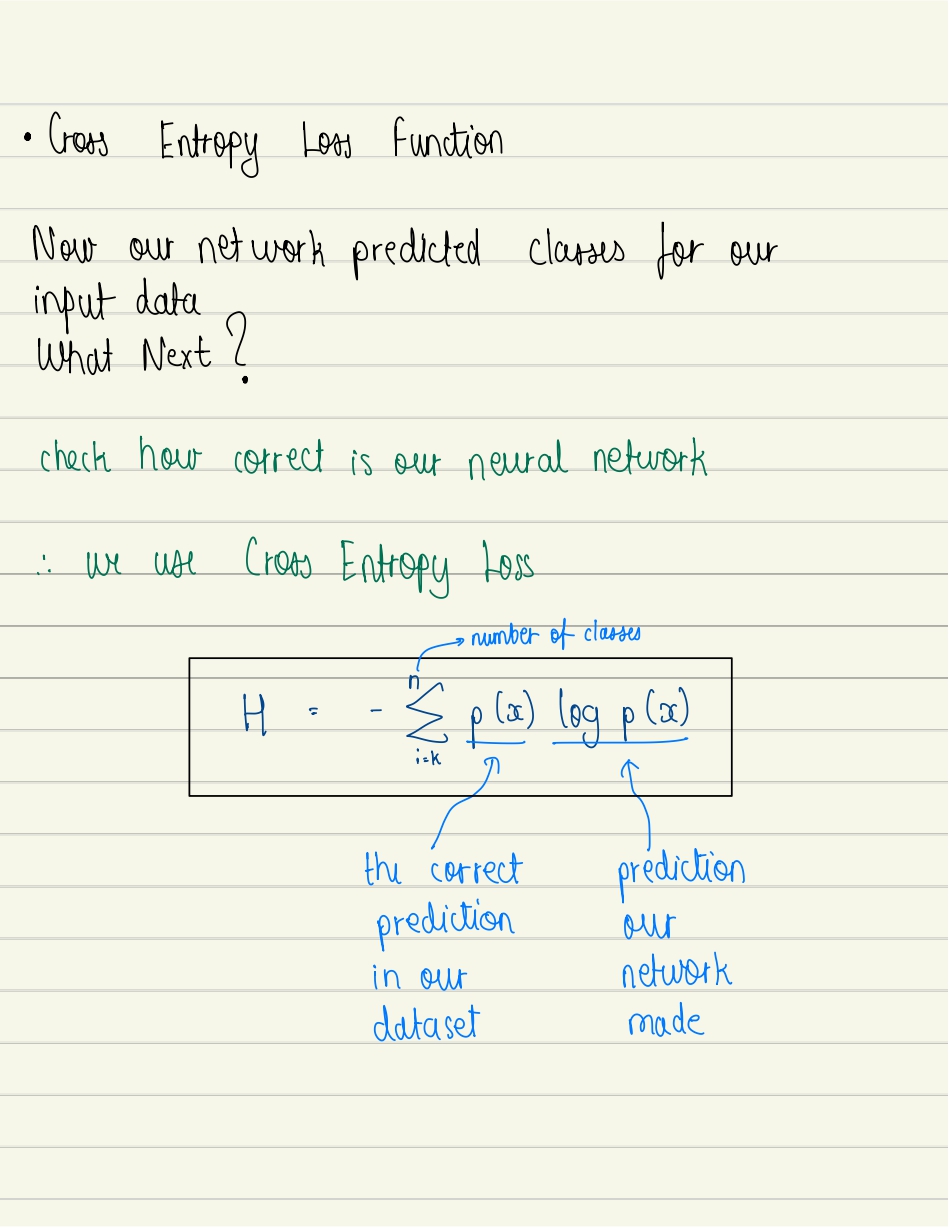 • Cross Entropy Loss Function
Now our network predicted classes for our
input data
What Next?
check how correct is our neural network
∴ we use Cross Entropy Loss
number of classes
H = - n Σ i=k p(x) log p(x)
the correct
prediction
in our
dataset
prediction
our
network
made